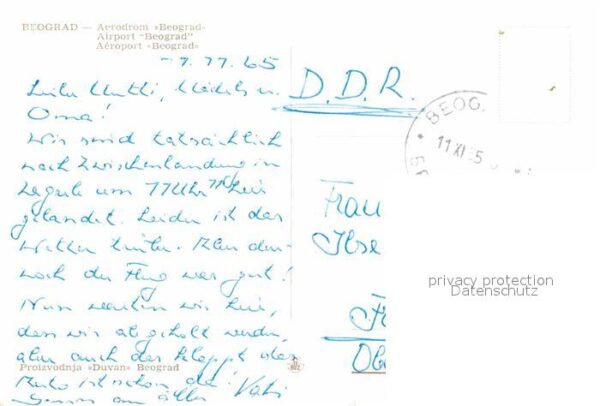 BEOGRAD — Aerodrom »Beograd«
Airport "Beograd"
Aéroport »Beograd«
65
Liebe Mutti, Mädels u.
Oma!
Wir sind tatsächlich
nach Zwischenlandung in
Zagreb um 11 Uhr hier
gelandet. Leider ist das
Wetter trübe. Aber den-
noch der Flug war gut!
Nun warten wir hier,
dass wir abgeholt werden,
aber auch das klappt das
Auto ist schon da!
Gruss an alle Vati
Proizvodnja »Duvan« Beograd
D.D.R.
BEOG
11 XI 65
Frau
Ilse
privacy protection
Datenschutz